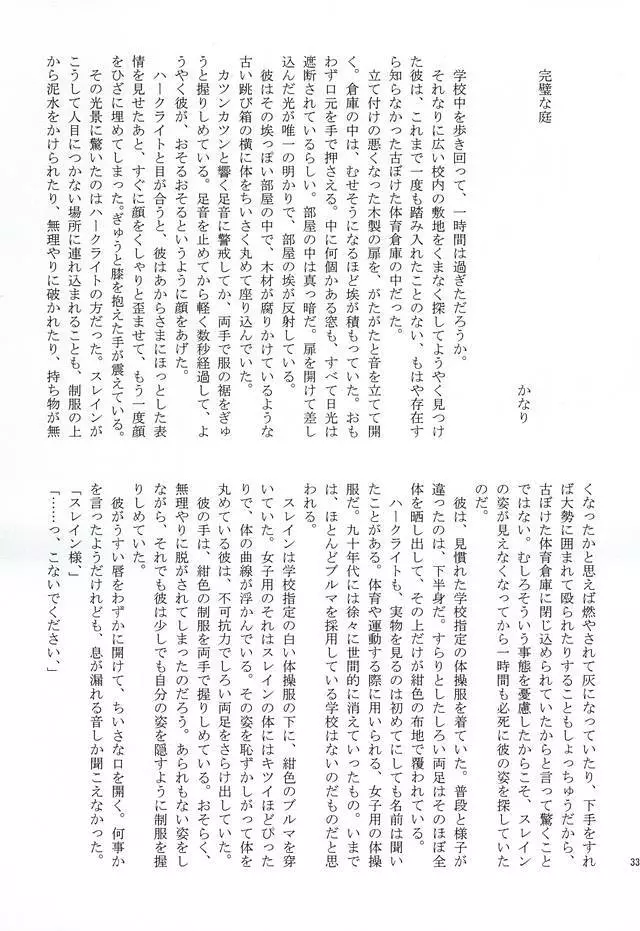 完璧な庭
かなり
学校中を歩き回って、一時間は過ぎただろうか。
それなりに広い校内の敷地をくまなく探してようやく見つけ
た彼は、これまで一度も踏み入れたことのない、もはや存在す
ら知らなかった古ぼけた体育倉庫の中だった。
立て付けの悪くなった木製の扉を、がたがたと音を立てて開
く。倉庫の中は、むせそうになるほど埃が積もっていた。おも
わず口元を手で押さえる。中に何個かある窓も、すべて日光は
遮断されているらしい。部屋の中は真っ暗だ。扉を開けて差し
込んだ光が唯一の明かりで、部屋の埃が反射している。
彼はその埃っぽい部屋の中で、木材が腐りかけているような
古い跳び箱の横に体をちいさく丸めて座り込んでいた。
カツンカツンと響く足音に警戒してか、両手で服の裾をぎゅ
うと握りしめている。足音を止めてから軽く数秒経過して、よ
うやく彼が、おそるおそるというように顔をあげた。
ハークライトと目が合うと、彼はあからさまにほっとした表
情を見せたあと、すぐに顔をくしゃりと歪ませて、もう一度顔
をひざに埋めてしまった。ぎゅうと膝を抱えた手が震えている。
その光景に驚いたのはハークライトの方だった。スレインが
こうして人目につかない場所に連れ込まれることも、制服の上
から泥水をかけられたり、無理やりに破かれたり、持ち物が無
くなったかと思えば燃やされて灰になっていたり、下手をすれ
ば大勢に囲まれて殴られたりすることもしょっちゅうだから、
古ぼけた体育倉庫に閉じ込められていたからと言って驚くこと
ではない。むしろそういう事態を憂慮したからこそ、スレイン
の姿が見えなくなってから一時間も必死に彼の姿を探していた
のだ。
彼は、見慣れた学校指定の体操服を着ていた。普段と様子が
違ったのは、下半身だ。すらりとしたしろい両足はそのほぼ全
体を晒し出して、その上だけが紺色の布地で覆われている。
ハークライトも、実物を見るのは初めてにしても名前は聞い
たことがある。体育や運動する際に用いられる、女子用の体操
服だ。九十年代には徐々に世間的に消えていったもの。いまで
は、ほとんどブルマを採用している学校はないのだものだと思
われる。
スレインは学校指定の白い体操服の下に、紺色のブルマを穿
いていた。女子用のそれはスレインの体にはキツイほどぴった
りで、体の曲線が浮かんでいる。その姿を恥ずかしがって体を
丸めている彼は、不可抗力でしろい両足をさらけ出していた。
彼の手は、紺色の制服を両手で握りしめている。おそらく、
無理やりに脱がされてしまったのだろう。あられもない姿をし
ながら、それでも彼は少しでも自分の姿を隠すように制服を握
りしめていた。
彼がうすい唇をわずかに開けて、ちいさな口を開く。何事か
を言ったようだけれども、息が漏れる音しか聞こえなかった。
「スレイン様、」
「……っ、こないでください、」
33